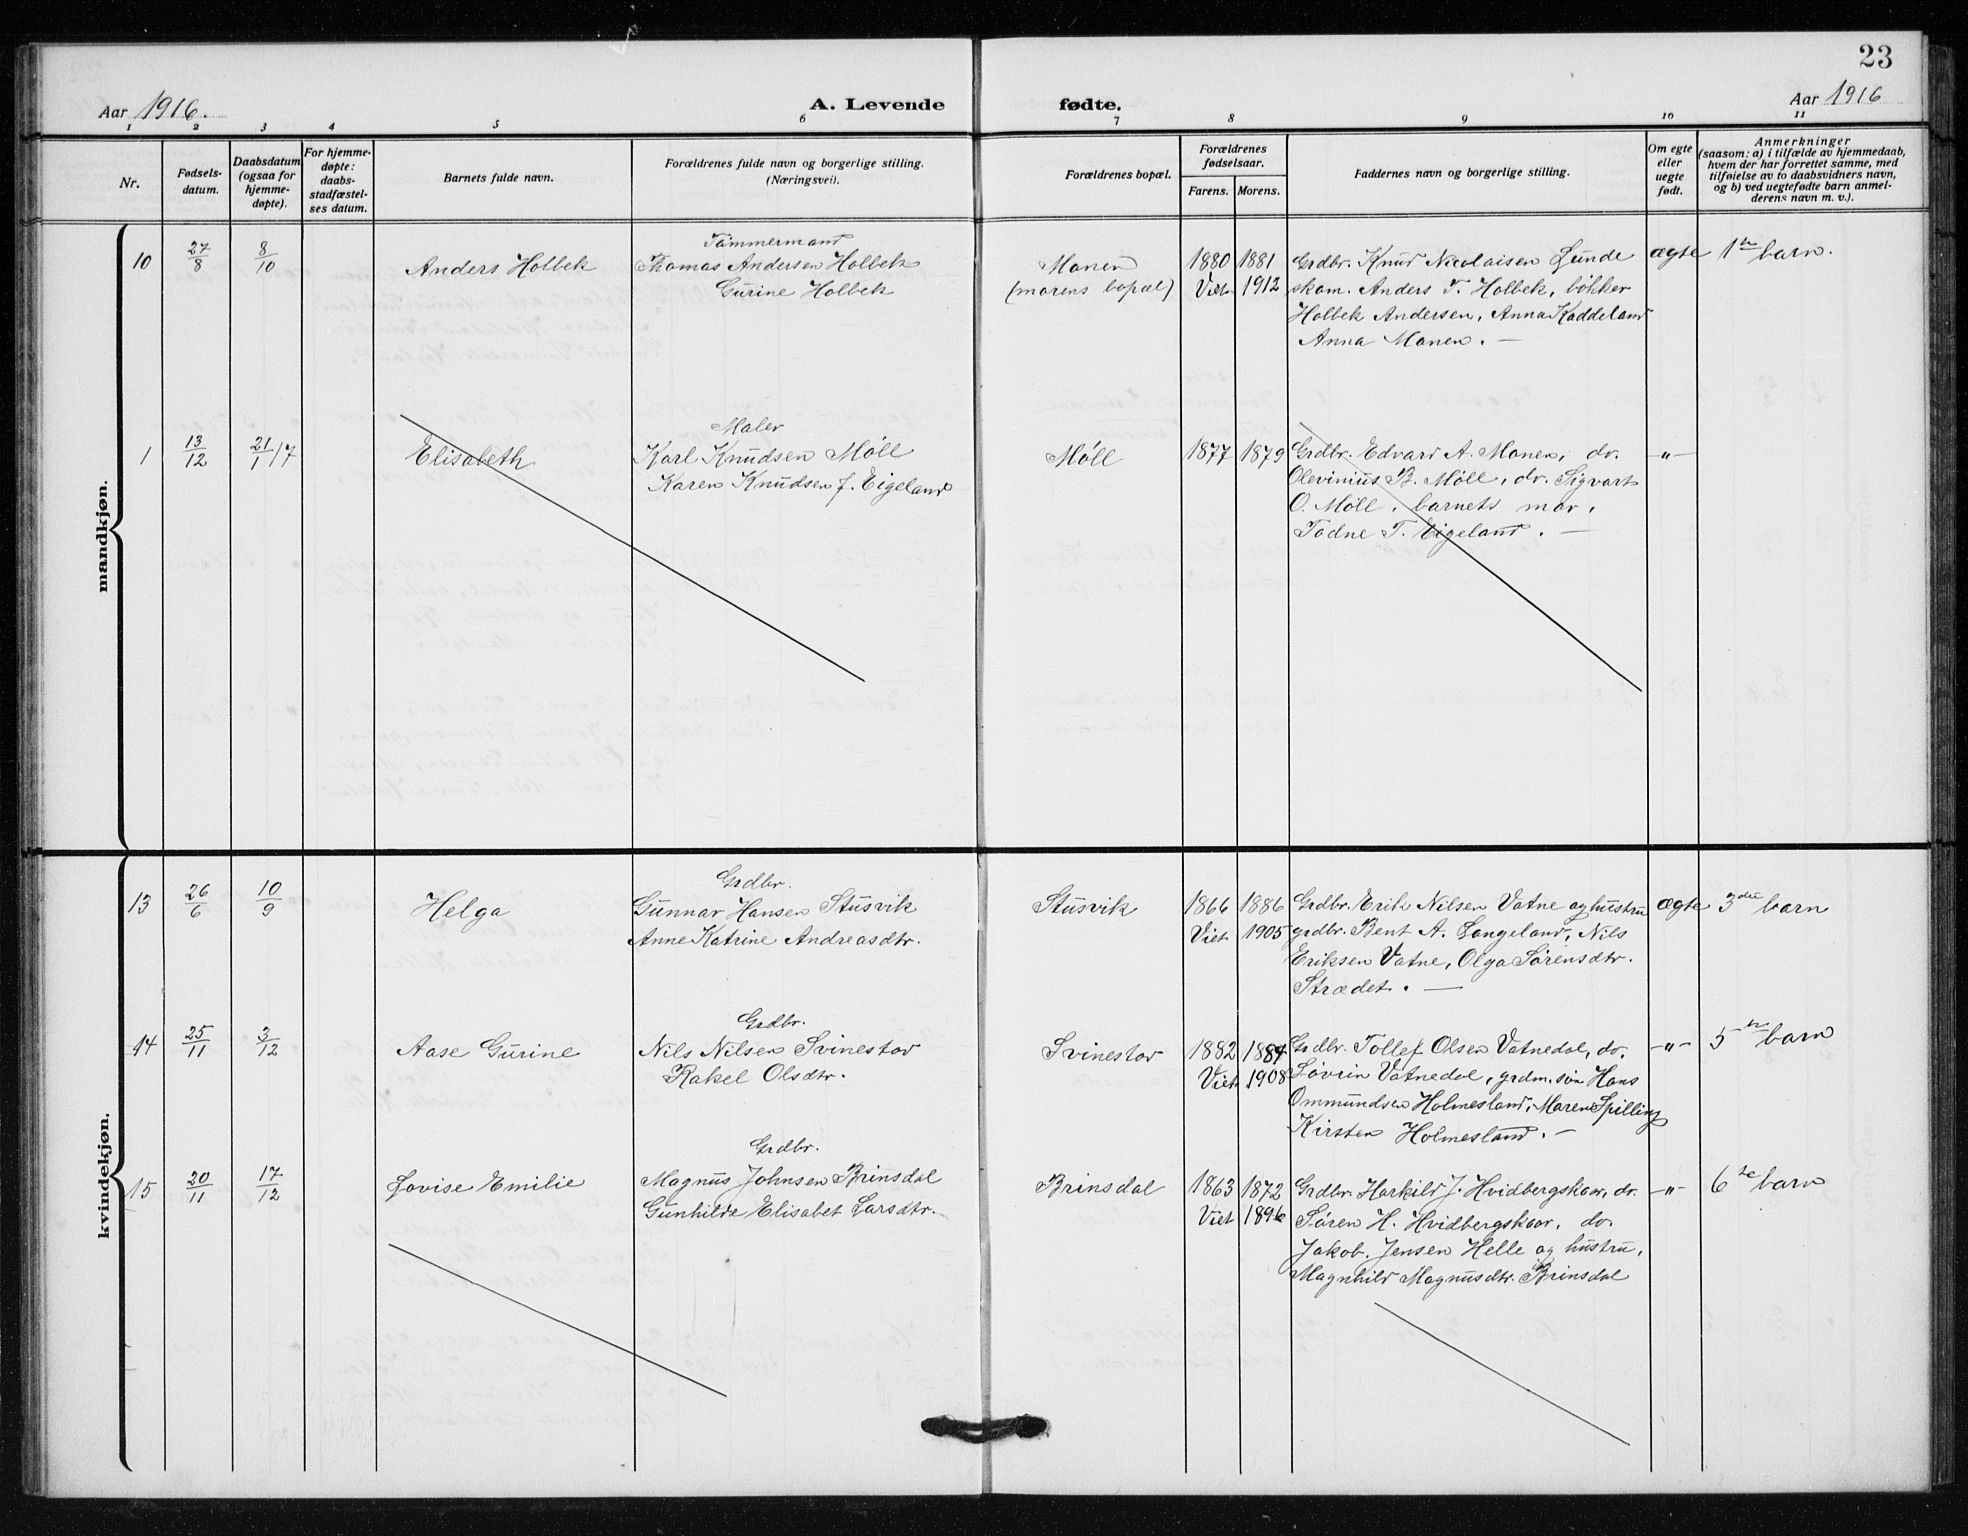 23
Aar 1916.
A. Levende
fødte.
Aar 1916
1 2 3 4 5 6 7 8 9 10 11
Nr.
Fødsels-
datum.
Daabsdatum
(ogsaa for
hjemme-
døpte).
For hjemme-
døpte:
daabs-
stadfæstel-
ses datum.
Barnets fulde navn.
Forældrenes fulde navn og borgerlige stilling.
(Næringsvei).
Forældrenes bopæl.
Forældrenes
fødselsaar.
Farens. Morens.
Faddernes navn og borgerlige stilling.
Om egte
eller
uegte
født.
Anmerkninger
(saasom: a) i tilfælde av hjemmedaab,
hvem der har forrettet samme, med
tilføielse av to daabsvidners navn,
og b) ved uegtefødte barn anmel-
derens navn m. v.).
mandkjøn.
10 27/8 8/10 Anders Holbek
Tømmermand
Thomas Andersen Holbek
Gurine Holbek
Monen
(morens bopæl)
1880 1881
Viet 1912
Grdbr. Knud Nicolaisen Lunde
skom. Anders T. Holbek, bøkker
Holbek Andersen, Anna Kaddeland
Anna Monen. —
ægte 1te barn.
1 13/12 21/1 17 Elisabeth
Maler
Karl Knudsen Møll
Karen Knudsen f. Eigeland
Møll
1877 1879
Grdbr. Edvard A. Monen, do.
Olevinius B. Møll, do. Sigvart
O. Møll, barnets mor,
Todne T. Eigeland. —
—"—
kvindekjøn.
13 26/6 10/9 Helga
Grdbr.
Gunnar Hansen Stusvik
Anne Katrine Andreasdtr.
Stusvik
1866 1886
Viet 1905
Grdbr. Erik Nilsen Vatne og hustru
grdbr. Bent A. Langeland, Nils
Eriksen Vatne, Olga Sørensdtr.
Strædet. —
ægte 3die barn
14 25/11 3/12 Aase Gurine
Grdbr.
Nils Nilsen Svinestov
Rakel Olsdtr.
Svinestov
1882 1884
Viet 1908
Grdbr. Tollef Olsen Vatnedal, do.
Søvrin Vatnedal, grdm. søn Hans
Ommundsen Holmesland, Maren Spilling
Kirsten Holmesland. —
—"— 5te barn
15 20/11 17/12 Lovise Emilie
Grdbr.
Magnus Johnsen Brinsdal
Gunhilde Elisabet Larsdtr.
Brinsdal
1863 1872
Viet 1896
Grdbr. Harkild J. Hvidbergskaar, do.
Søren H. Hvidbergskaar, do
Jakob. Jensen Helle og hustru,
Magnhild Magnusdtr. Brinsdal
—"— 6te barn